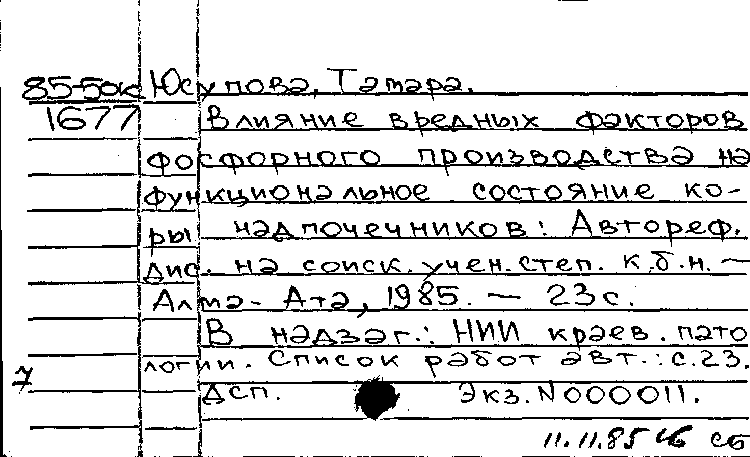 85-50к Юсупова, Тамара.
1677 Влияние вредных факторов
фосфорного производства на
функциональное состояние ко-
ры надпочечников: Автореф.
дис. на соиск. учен. степ. к.б.н. —
Алма-Ата, 1985. — 23с.
В надзаг.: НИИ краев. пато
логии. Список работ авт.: с.23.
7
Дсп. Экз. N000011.
11.11.85 сб